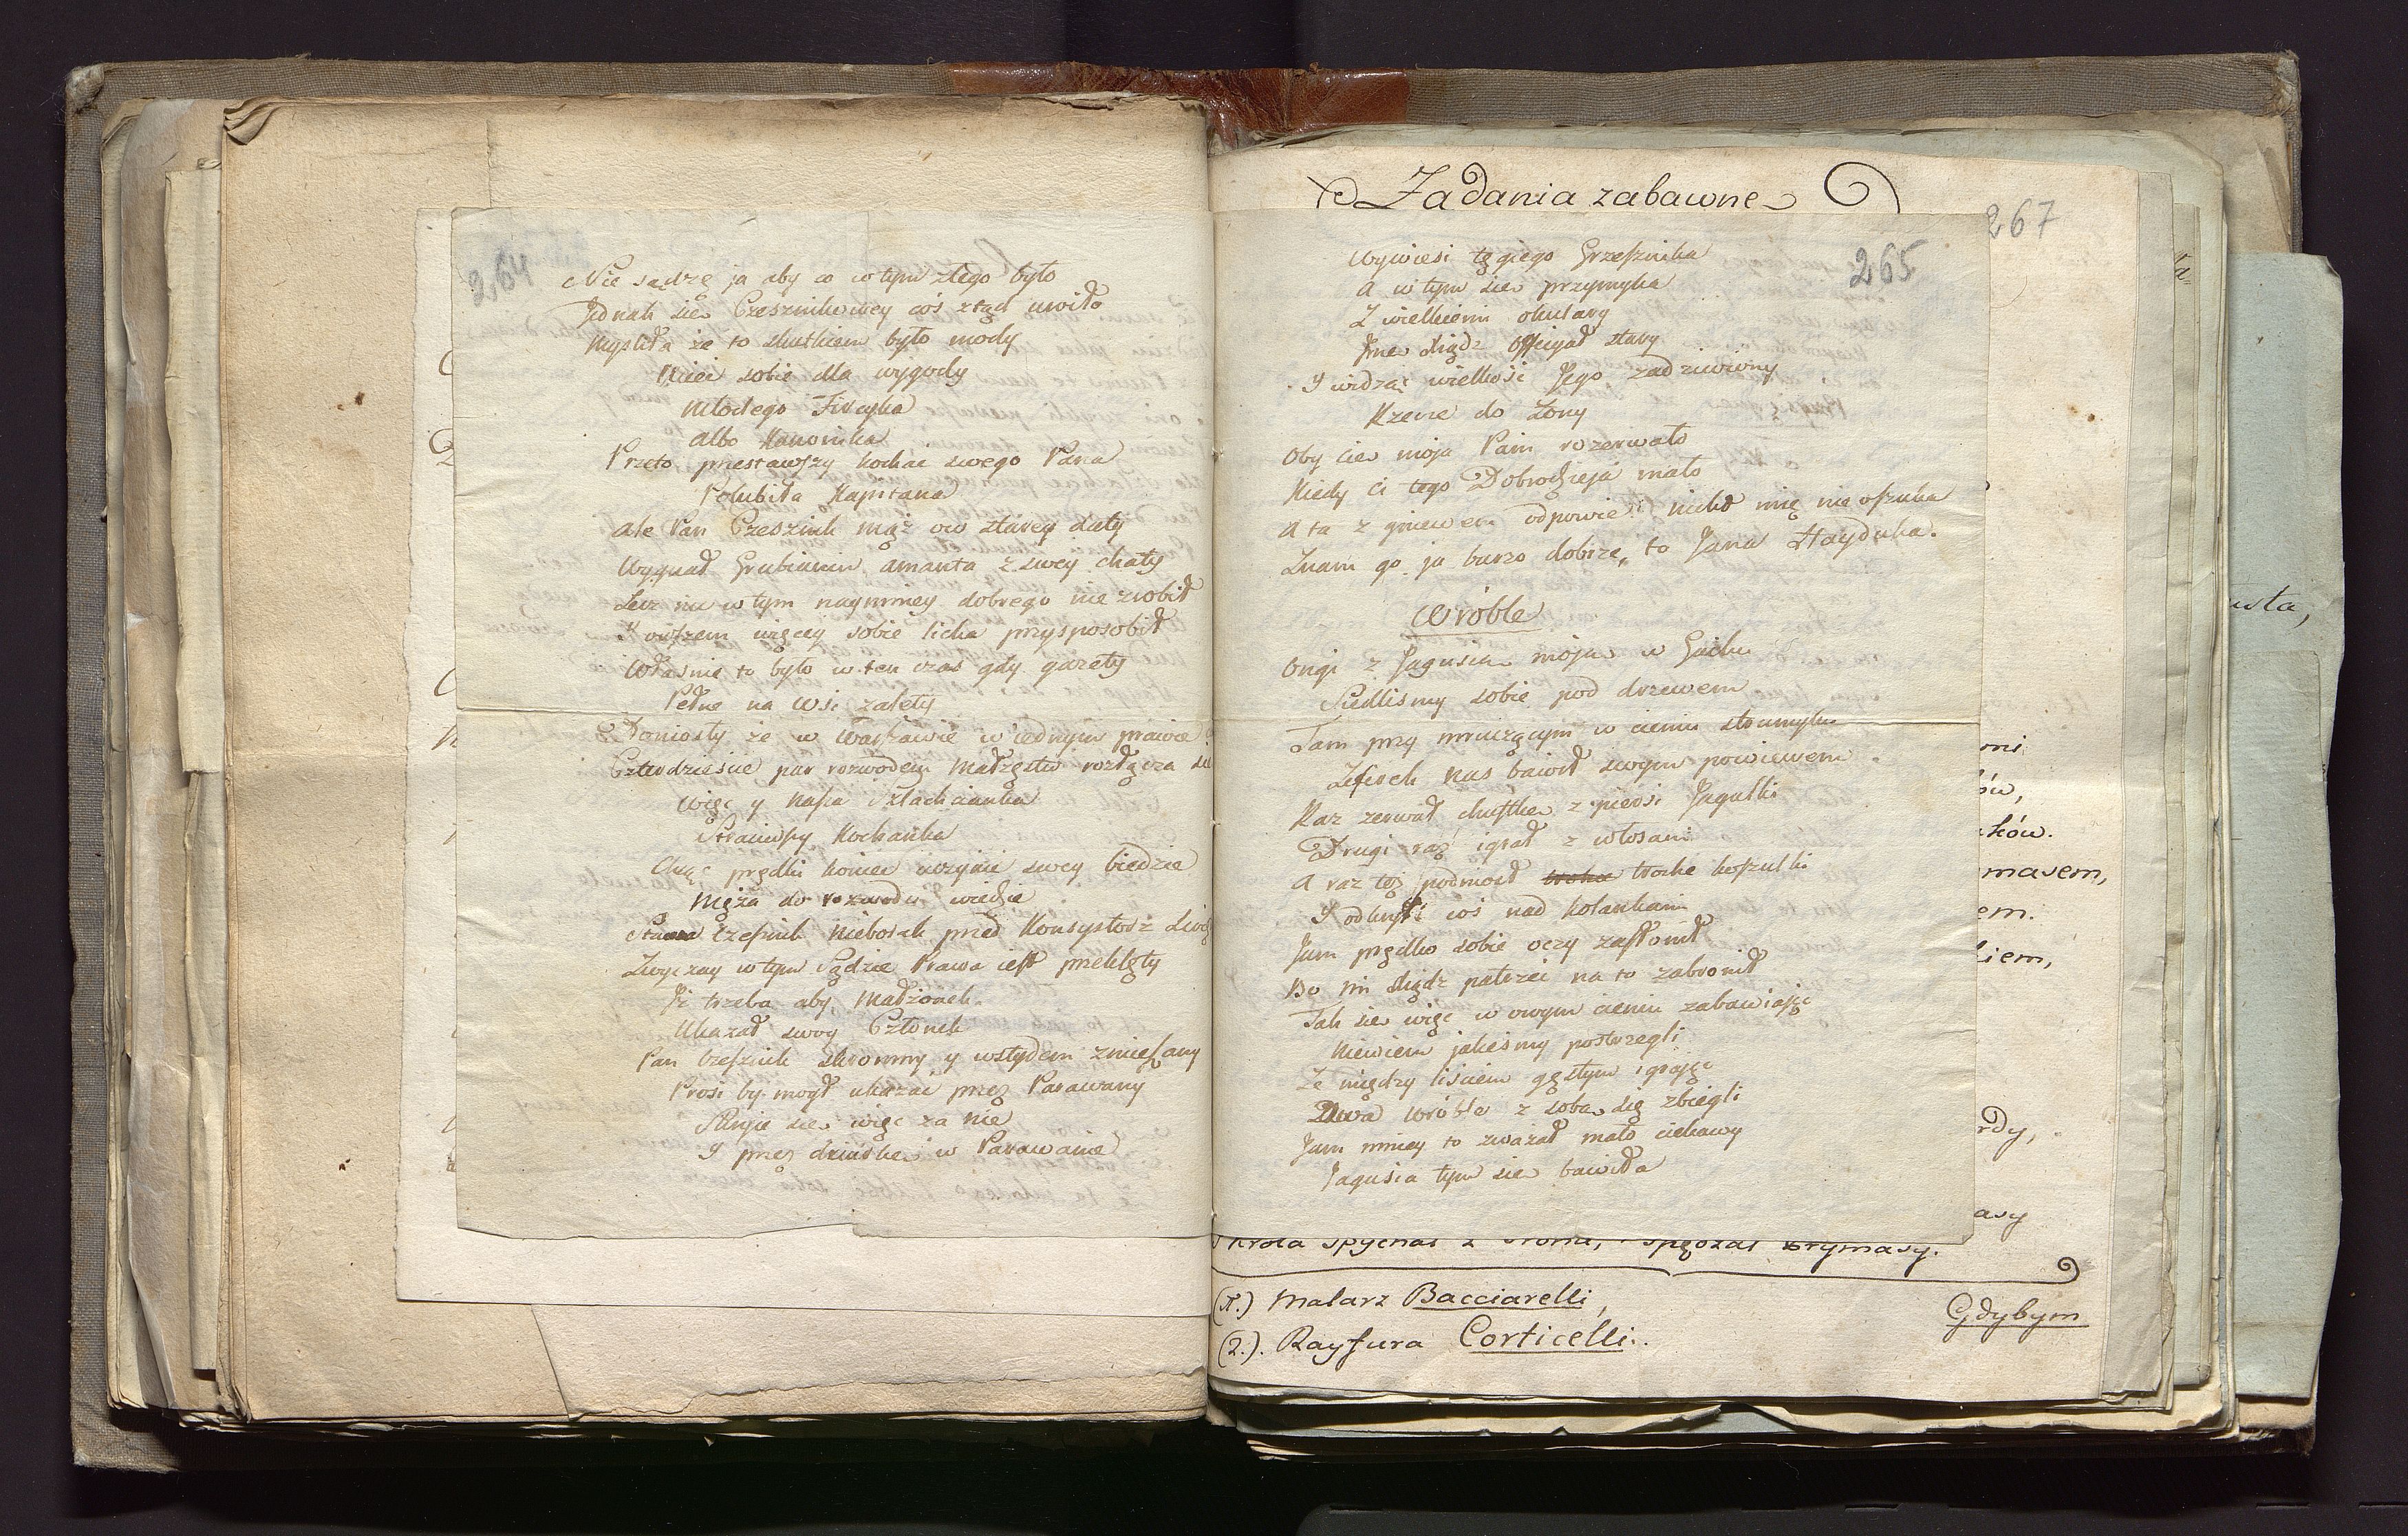 264
Nie sądzę ja aby co w tym złego było
Jednak sie Czesznikowey coś ztąd uwiło
Myśliła że to skutkiem było mody
Mieć sobie dla wygody
Młodego Fircyka
albo Kanonika
Przeto przestawszy kochać swego Pana
Polubiła Kapitana
ale Pan Czesznik mąż ow starey daty
Wygnał Grubianin amanta z swey chaty
Lecz nic w tym naymniey dobrego nie zrobił
I owszem więcey sobie licha przysposobił
Właśnie to było w ten czas gdy gazety
Pełne na wsi zalety
Doniosły że w Warszawie w iednym prawie
Czterdzieście par rozwodem małżeństw rozłącza się
Więc y nasza Szlachcianka
Straciwszy Kochanka
Chcąc prędki koniec uczynić swey biedzie
Męża do rozwodu wiedzie
Czesznik nieborak przed Konsystorz
Zwyczay w tym Sądzie Prawa iest przeklęty
Iż trzeba aby Małżonek
Ukazał swoy Członek
Pan Czesznik skromny y wstydem zmieszany
Prosi by mógł ukazać przez Parawany
sie więc za nie
I przez dziurke w Parawanie
Zadania zabawne
267
265
Wywiesi tęgiego Grzesznika
A w tym sie przymyka
Z wielkiemi okulary
Jmc Xiądz Officyał stary
I widząc wielkość Jego zadziwiony
Rzecze do Żony
Oby cie moja Pani rozerwało
Kiedy ci tego Dobrodzieja mało
A ta z gniewem odpowie: nikt mię nie oszuka
Znam go ja barzo dobrze, to Jana Hayduka.
Wróble
Ongi z Jagusią moją w Gaiku
Siedliśmy sobie pod drzewem
Tam przy mruczącym w cieniu strumyku
Zefirek nas bawił swym powiewem
Raz zerwał chustke z piersi Jagulki
Drugi raz igrał z włosami
A raz też podniosł troche koszulki
I odkrył coś nad kolankami
Jam prędko sobie oczy zasłonił
Bo mi Xiądz patrzeć na to zabronił
Tak sie więc w owym cieniu zabawiając
Niewiem jakeśmy postrzegli
Że między liściem gęstym igrając
Dwa wróble z sobą się zbiegli
Jam mniey to zważał mało ciekawy
Jagusia tym sie bawiła
Króla spychać z tronu, spędzać Prymasy.
(1.) Malarz Bacciarelli,
(2.). Rayfura Corticelli.
Gdybym